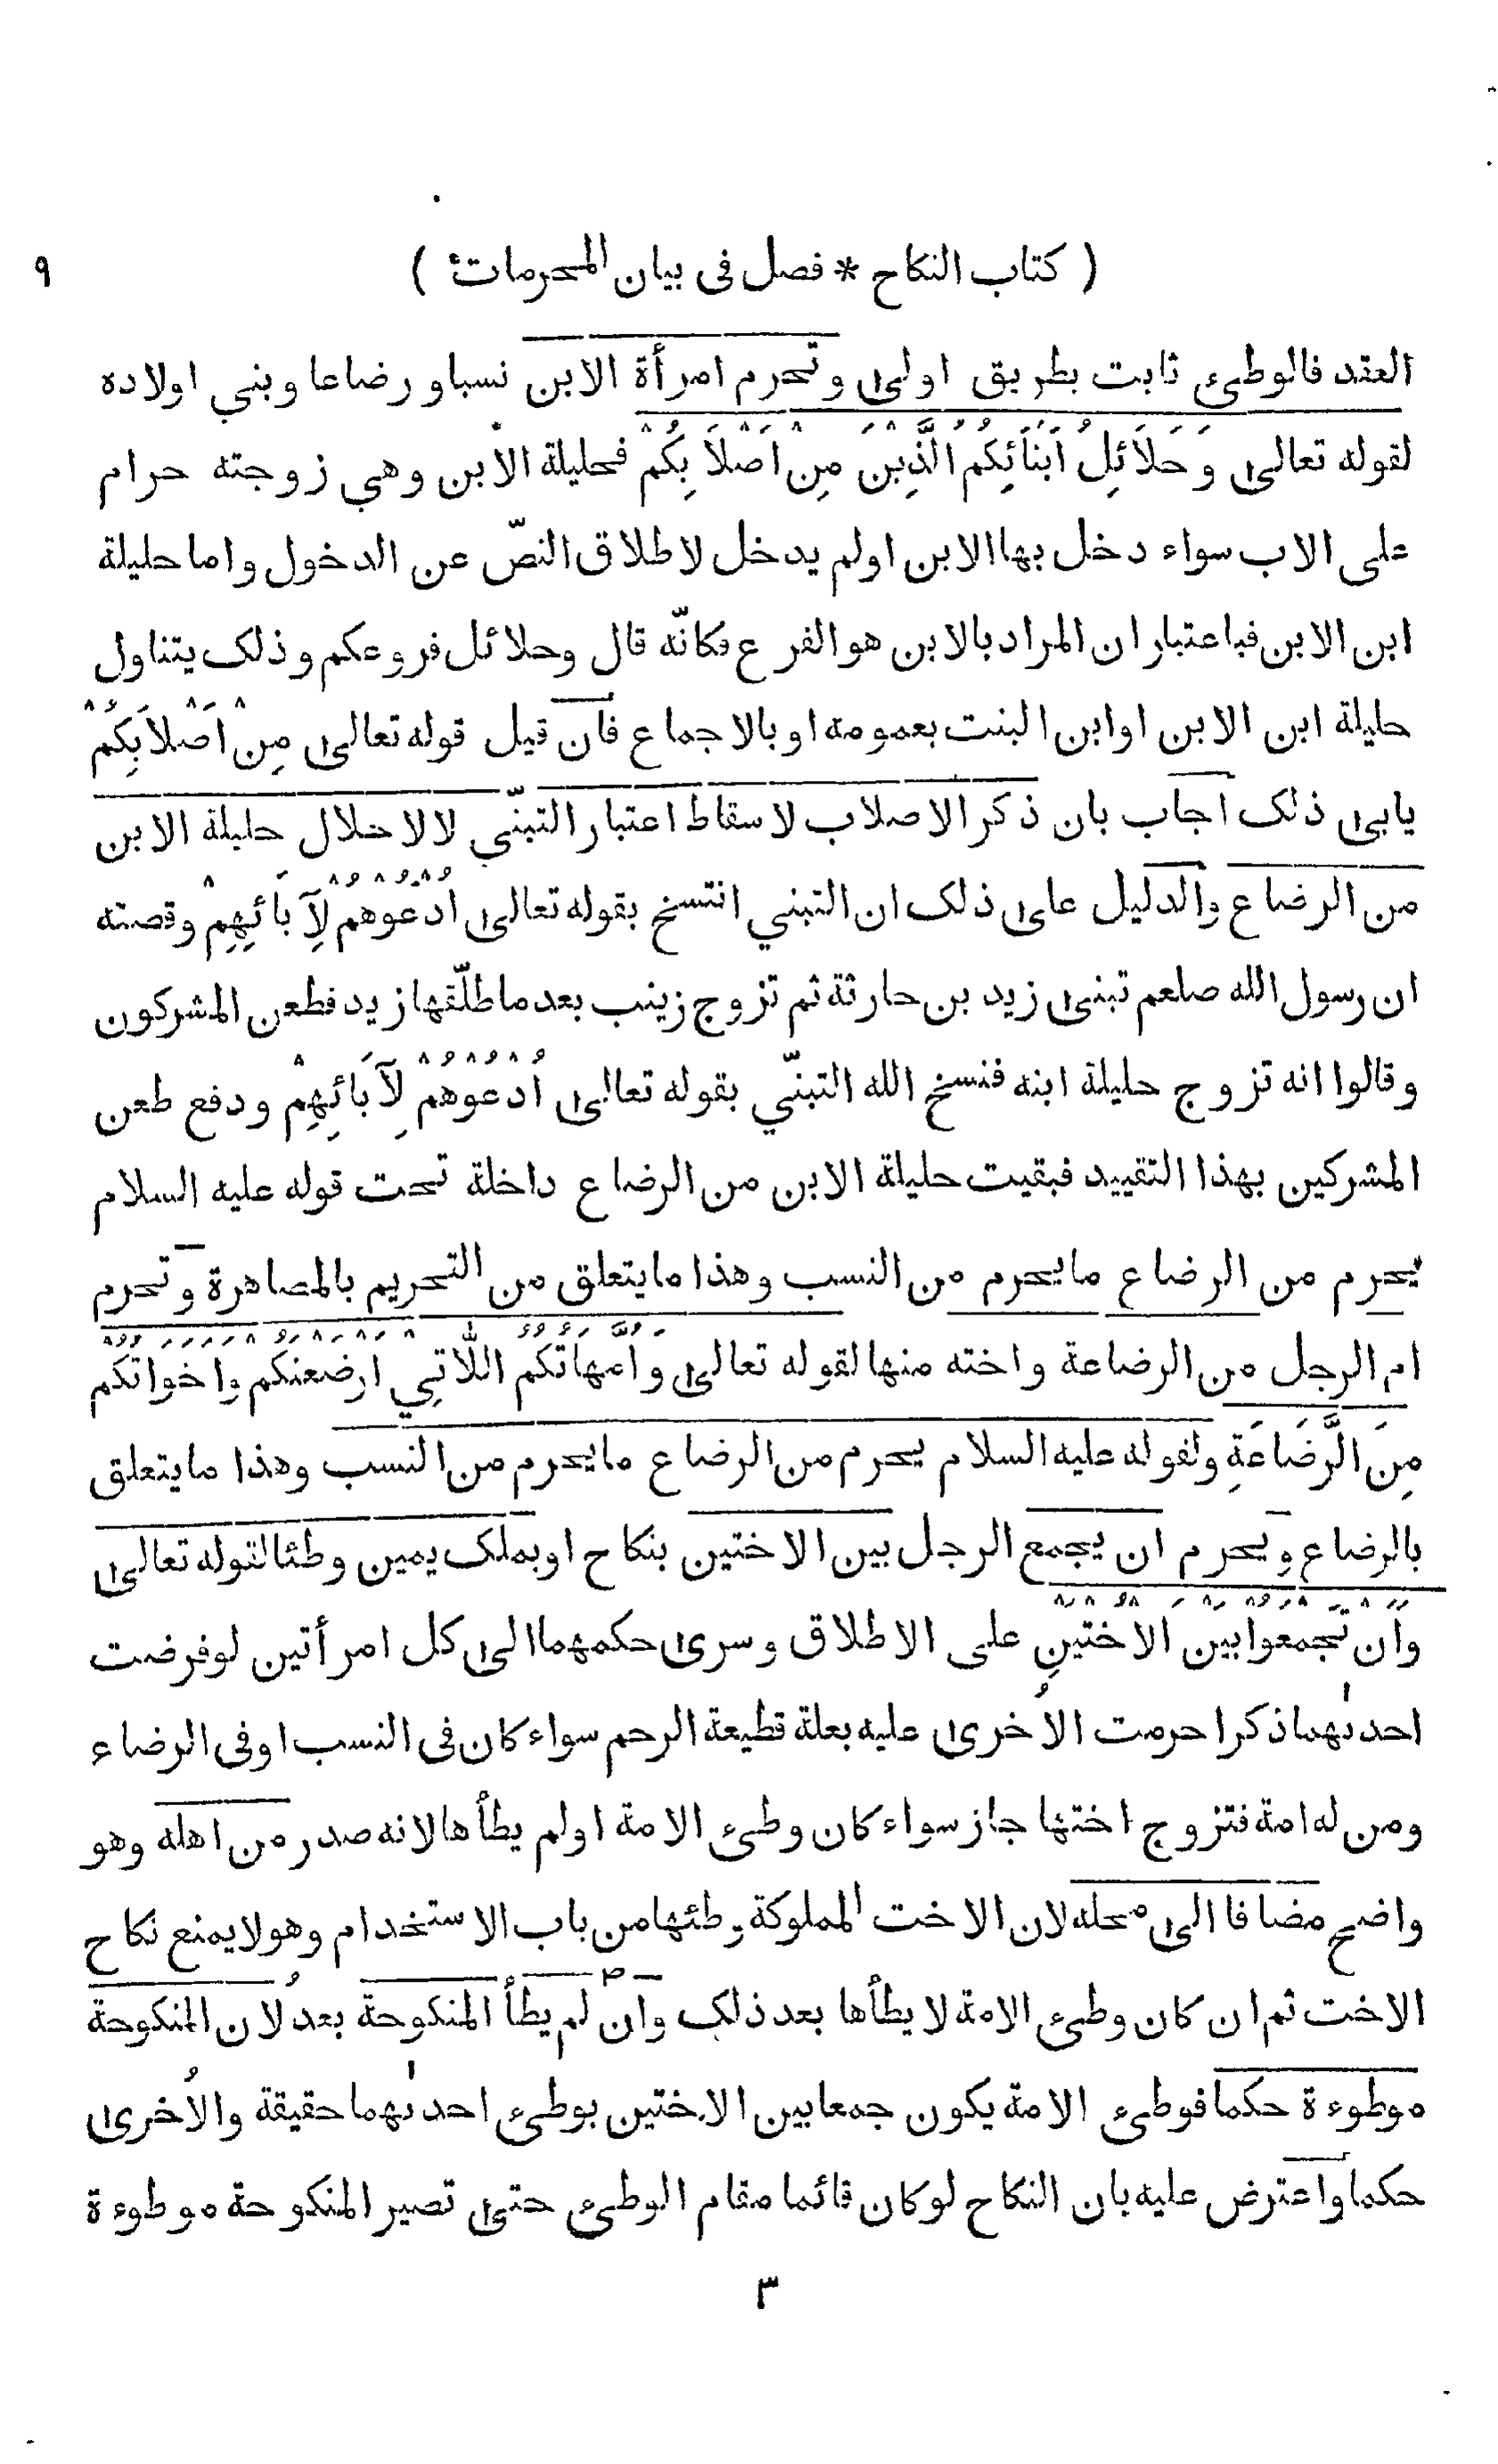 ( كتاب النكاح * فصل فى بيان المحرمات )
٩
العقد فالوطىء ثابت بطريق اولى وتحرم امرأة الابن نسبا و رضاعا وبني اولاده
لقوله تعالى وَحَلَائِلُ أَبْنَائِكُمُ الَّذِينَ مِنْ أَصْلَابِكُمْ فحليلة الابن وهي زوجته حرام
على الاب سواء دخل بها الابن اولم يدخل لاطلاق النصّ عن الدخول واما حليلة
ابن الابن فباعتبار ان المراد بالابن هو الفرع فكانّه قال وحلائل فروعكم وذلك يتناول
حليلة ابن الابن اوابن البنت بعمومه اوبالاجماع فان قيل قوله تعالى مِنْ أَصْلَابِكُمْ
يابى ذلك اجاب بان ذكر الاصلاب لاسقاط اعتبار التبنّي لالاحلال حليلة الابن
من الرضاع والدليل على ذلك ان التبني انتسخ بقوله تعالى ادْعُوهُمْ لِآبَائِهِمْ وقصته
ان رسول الله صلعم تبنى زيد بن حارثة ثم تزوج زينب بعد ما طلّقها زيد فطعن المشركون
وقالوا انه تزوج حليلة ابنه فنسخ الله التبنّي بقوله تعالى اُدْعُوهُمْ لِآبَائِهِمْ ودفع طعن
المشركين بهذا التقييد فبقيت حليلة الابن من الرضاع داخلة تحت قوله عليه السلام
يحرم من الرضاع مايحرم من النسب وهذا مايتعلق من التحريم بالمصاهرة وتحرم
ام الرجل من الرضاعة واخته منها لقوله تعالى وَأُمَّهَاتُكُمُ اللَّاتِي أَرْضَعْنَكُمْ وَأَخَوَاتُكُمْ
مِنَ الرَّضَاعَةِ ولقوله عليه السلام يحرم من الرضاع مايحرم من النسب وهذا مايتعلق
بالرضاع ويحرم ان يجمع الرجل بين الاختين بنكاح اوبملك يمين وطئا لقوله تعالى
وَأَنْ تَجْمَعُوا بَيْنَ الْأُخْتَيْنِ على الاطلاق وسرى حكمهما الى كل امرأتين لوفرضت
احدىهما ذكرا حرمت الاُخرى عليه بعلة قطيعة الرحم سواء كان فى النسب اوفى الرضاع
ومن له امة فتزوج اختها جاز سواء كان وطىء الامة اولم يطأها لانه صدر من اهله وهو
واضح مضافا الى محله لان الاخت المملوكة وطئها من باب الاستخدام وهولايمنع نكاح
الاخت ثم ان كان وطىء الامة لايطأها بعد ذلك وان لم يطأ المنكوحة بعدُ لان المنكوحة
موطوءة حكما فوطىء الامة يكون جمعا بين الاختين بوطىء احدىهما حقيقة والاُخرى
حكما واعترض عليه بان النكاح لوكان قائما مقام الوطىء حتى تصير المنكوحة موطوءة
٣